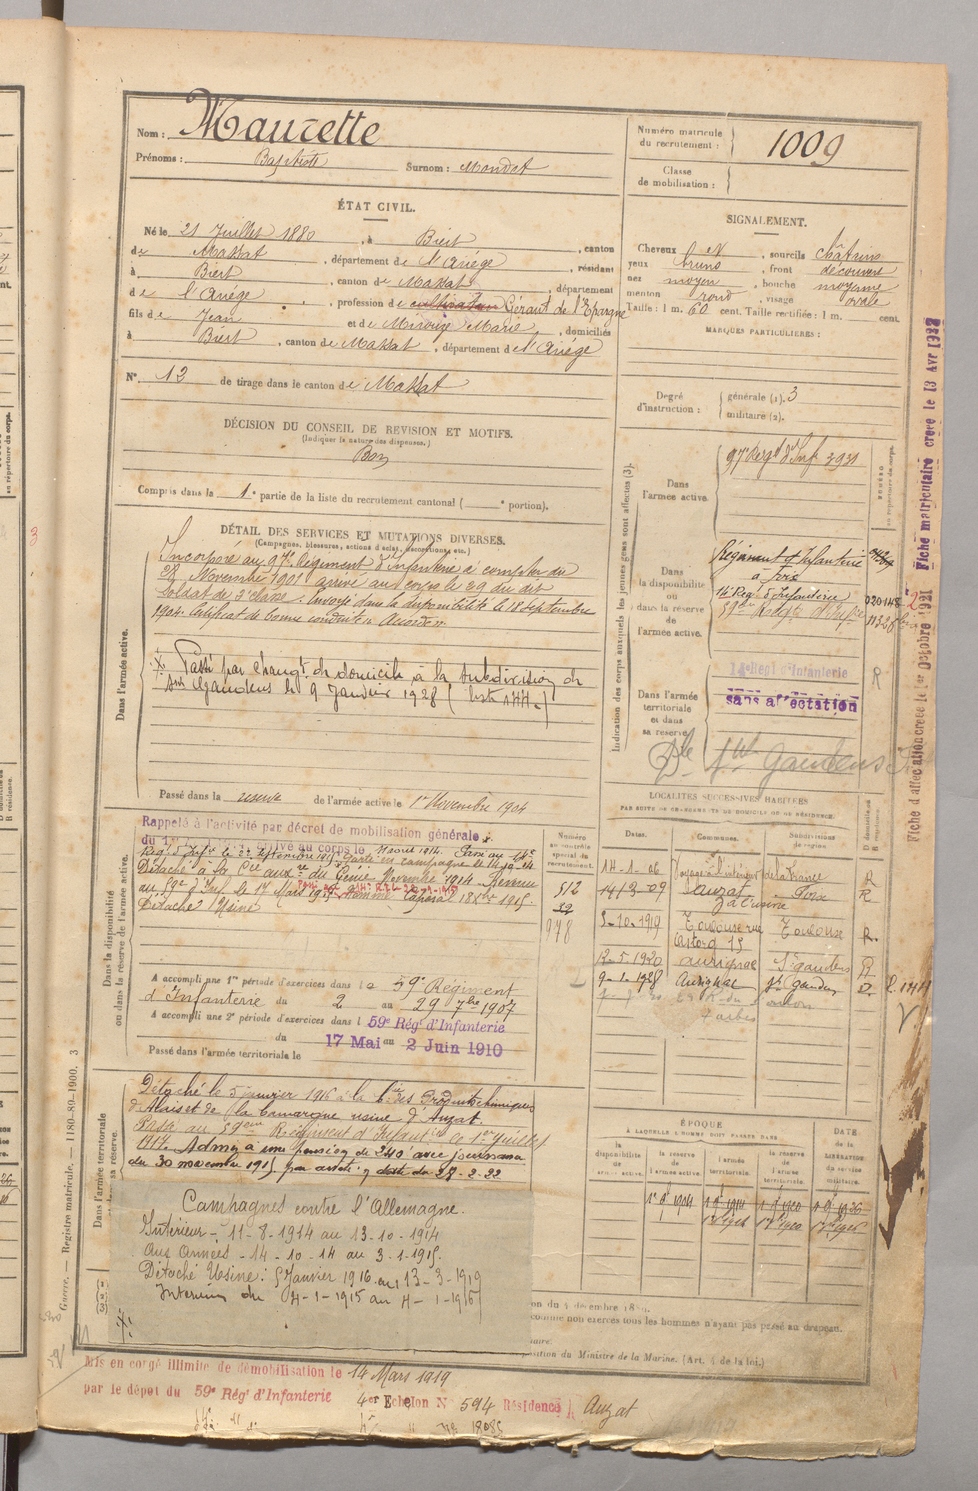 Nom : Maurette
Prénoms : Baptiste Surnom : Mondot
Numéro matricule du recrutement : 1009
Classe de mobilisation :
ÉTAT CIVIL.
Né le 21 Juillet 1880, à Biert, canton
de Massat, département de l'Ariége, résidant
à Biert, canton de Massat, département
de l'Ariége, profession de cultivateur Gérant de l'Epargne
fils de Jean et de Mirouze Marie, domiciliés
à Biert, canton de Massat, département de l'Ariége
N° 12 de tirage dans le canton de Massat
SIGNALEMENT.
Cheveux N, sourcils châtains
yeux bruns, front découvert
nez moyen, bouche moyenne
menton rond, visage ovale
Taille : 1 m. 60 cent. Taille rectifiée : 1 m. cent.
MARQUES PARTICULIÈRES :
Degré d'instruction : générale (1). 3
militaire (2).
DÉCISION DU CONSEIL DE REVISION ET MOTIFS.
(Indiquer la nature des dispenses.)
Bon
Compris dans la 1e partie de la liste du recrutement cantonal ( e portion).
DÉTAIL DES SERVICES ET MUTATIONS DIVERSES.
(Campagnes, blessures, actions d'éclat, décorations, etc.)
Dans l'armée active.
Incorporé au 97e Régiment d'Infanterie à compter du
Novembre 1901 arrivé au corps le 29 du dit
soldat de 2e classe. Envoyé dans la disponibilité le 18 septembre
1904. Certificat de bonne conduite Accordé
Passé par changt de domicile à la subdivision de
St Gaudens le 9 Janvier 1928
Passé dans la reserve de l'armée active le 1er Novembre 1904
Indication des corps auxquels les jeunes gens sont affectés (3).
Dans l'armée active.
97e Regt d'Inf 3931
NUMÉRO au répertoire du corps.
Dans la disponibilité ou dans la réserve de l'armée active.
Régiment d'Infanterie
à Foix
14e Reg. d'Infanterie
59e Regt d'Infrie
Dans l'armée territoriale et dans sa réserve
14e Régt d'Infanterie
sans affectation
St Gaudens
R
Fiche matriculaire créée le 13 Avr 1922
Fiche d'affectation créée le 1er Octobre 1921
Dans la disponibilité ou dans la réserve de l'armée active.
Rappelé à l'activité par décret de mobilisation générale
du 1er Arrivé au corps le 11 aout 1914. Passé au 14e
Détaché à la Cie aux re du Génie Novembre 1914 Revenu
au 59e d'Inf le 17 Mars 1915 Nommé Caporal
Détaché Usine
Numéro au contrôle spécial du recrutement.
512
32
978
A accompli une 1re période d'exercices dans le 59e Régiment
d'Infanterie du 2 au 29 7bre 1907
A accompli une 2e période d'exercices dans l 59e Régt d'Infanterie
du 17 Mai au 2 Juin 1910
Passé dans l'armée territoriale le
LOCALITÉS SUCCESSIVES HABITÉES
PAR SUITE DE CHANGEMENTS DE DOMICILE OU DE RÉSIDENCE.
Dates. Communes. Subdivisions de région. D domicile R résidence.
14-1-06 Voyage à l'intérieur de la France R
14/3-09 Auzat à l'usine Foix R
5-10-1919 Toulouse rue Astorg 15 Toulouse R.
12-5-1920 Aurignac St gaudens R
9-1-1928 Aurignac St gaudens D
Tarbes
Dans l'armée territoriale et dans sa réserve.
Détaché le 5 janvier 1916 à la Cie des Produits chimiques
d'Alais et de la Camargue usine d'Auzat.
Passé au 59eme Régiment d'Infanterie le 1er juillet
1917. Admis à une pension de 240 avec jouissance
du 30 novembre 1915 par arrêté en date du 28-2-22
Campagnes contre l'Allemagne.
Intérieur - 11-8-1914 au 13-10-1914
Aux Armées - 14-10-14 au 3-1-1915.
Détaché Usine : 5 Janvier 1916 au 13-3-1919
Interieur du 4-1-1915 au 4-1-1916
ÉPOQUE
À LAQUELLE L'HOMME DOIT PASSER DANS
la disponibilité de l'armée active. la réserve de l'armée active. l'armée territoriale. la réserve de l'armée territoriale.
DATE de la LIBÉRATION du service militaire.
comme non exercés tous les hommes n'ayant pas passé au drapeau.
disposition du Ministre de la Marine. (Art. 4 de la loi.)
Guerre. — Registre matricule. — 1180-89-1900. 3
Mis en congé illimité de démobilisation le 14 Mars 1919
par le dépot du 59e Régt d'Infanterie 4er Echelon N° 594 Résidence Auzat